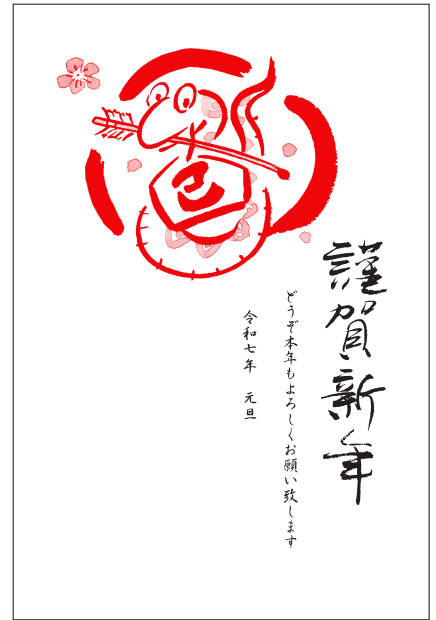 巳
謹賀新年
どうぞ本年もよろしくお願い致します
令和七年　元旦